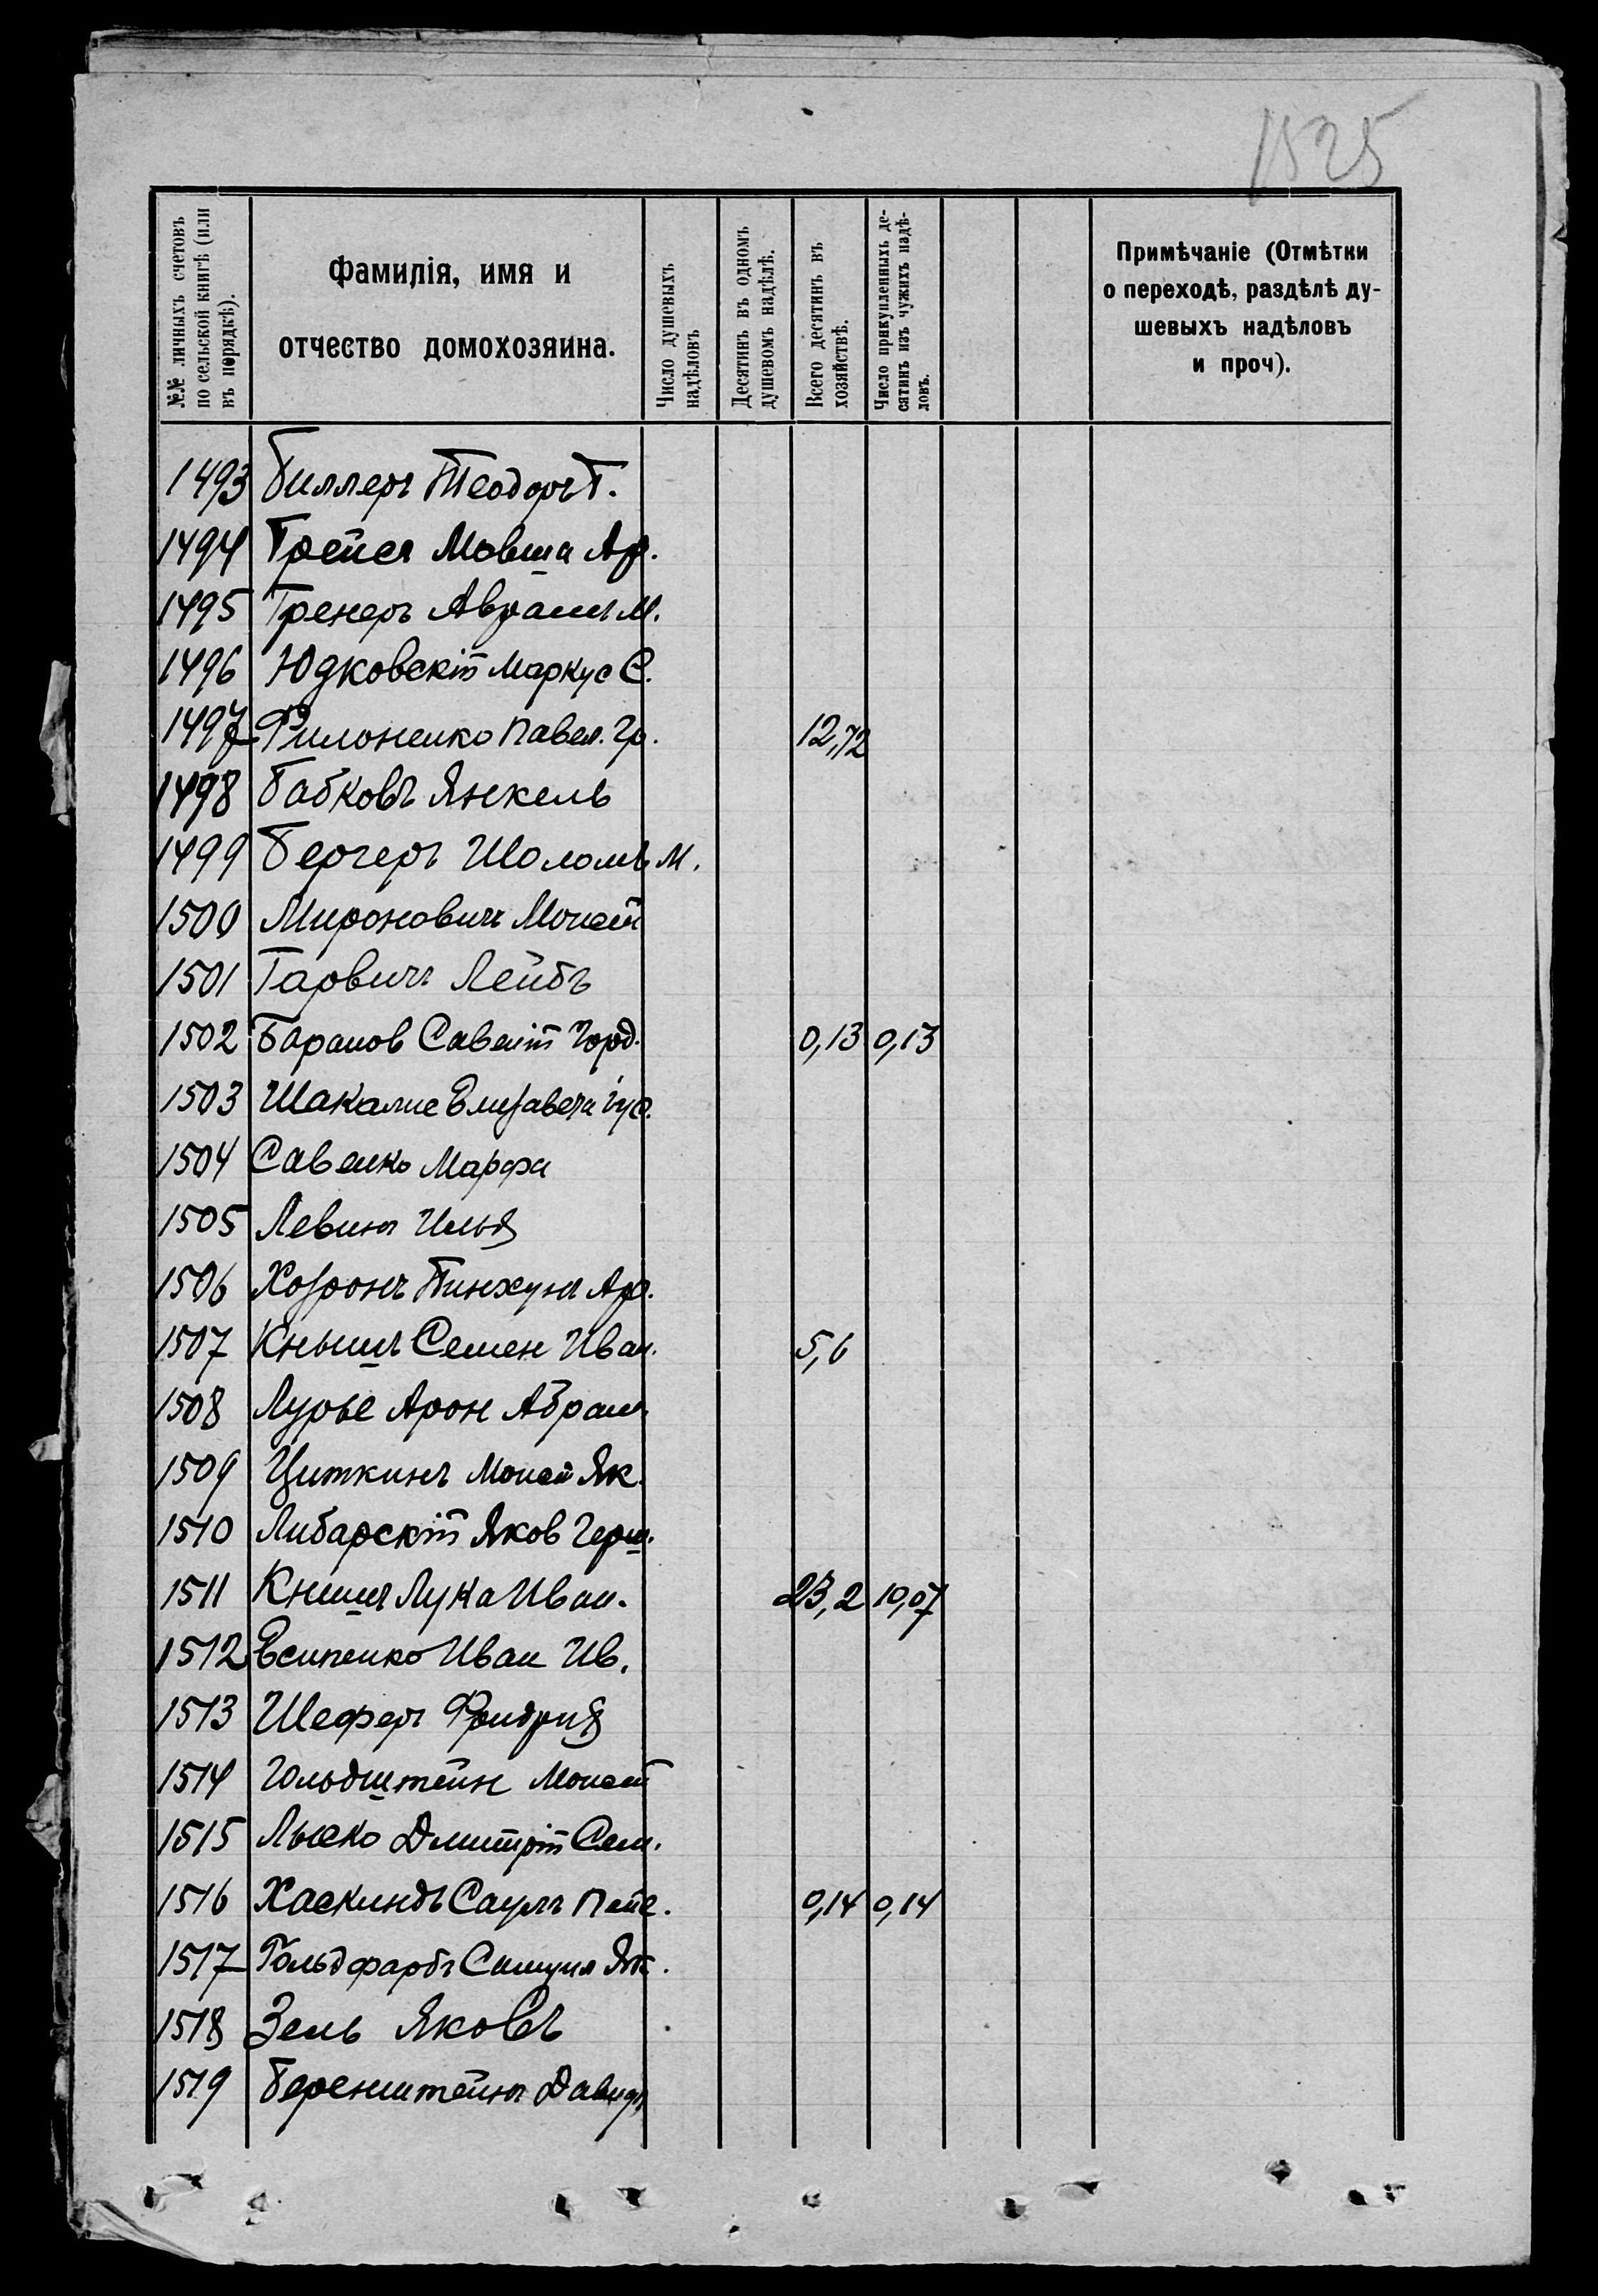 1525
№№ личныхъ счетовъ по сельской книгѣ (или въ порядкѣ).
Фамилія, имя и отчество домохозяина.
Число душевыхъ надѣловъ
Десятинъ въ одномъ душевомъ надѣлѣ.
Всего десятинъ въ хозяйствѣ.
Число прикупленныхъ десятинъ изъ чужихъ надѣловъ.
Примѣчаніе (Отмѣтки о переходѣ, раздѣлѣ душевыхъ надѣловъ и проч).
1493 Биллеръ Теодоръ Г.
1494 Грейсъ Мовша Ар.
1495 Гренеръ Аврамъ М.
1496 Юдковскій Маркус С.
1497 Филоненко Павел. Гр. 12,72
1498 Бабковъ Янкель
1499 Бергеръ Шоломъ М.
1500 Мироновичъ Моисей
1501 Гарвичъ Лейбъ
1502 Баранов Савелій Горд. 0,13 0,13
1503 Шакалис Елизавета
1504 Савенко Марфа
1505 Левинъ Илья
1506 Хозронъ Пинхусъ Ар.
1507 Кнышъ Семен Иван. 5,6
1508 Лурье Арон Абрам.
1509 Циткинъ Моисей Як.
1510 Либарскій Яков Герш.
1511 Книшъ Лука Иван. 23,2 10,07
1512 Есипенко Иван Ив.
1513 Шеферъ Фридрих
1514 Гольдштейн Моисей
1515 Лыско Дмитрій Сем.
1516 Хаскиндъ Саулъ Пейс. 0,14 0,14
1517 Гольдфарбъ Самуил Як.
1518 Зель Яковъ
1519 Беренштейнъ Давидъ